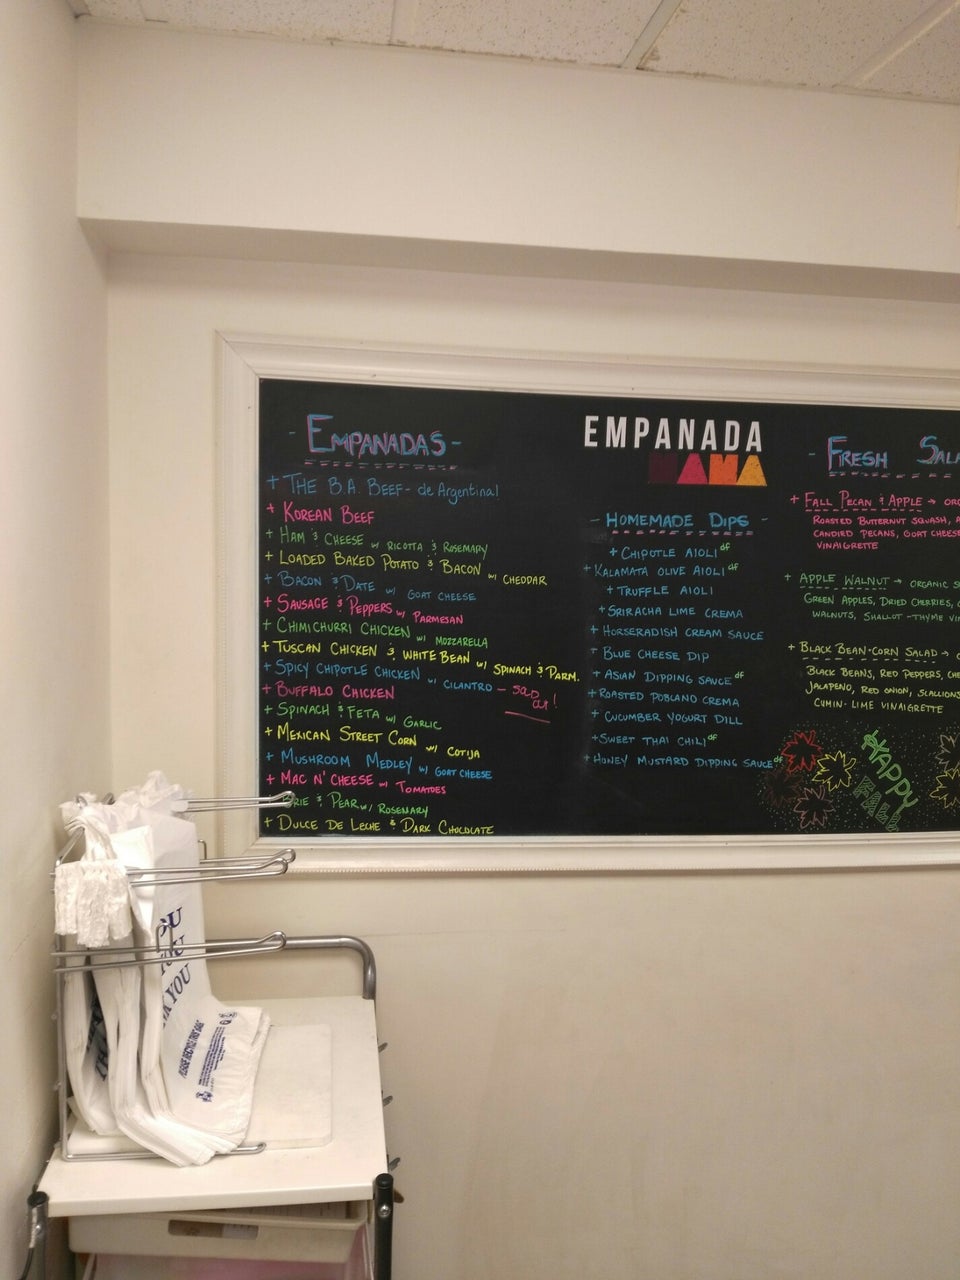 - EMPANADAS -
+ THE B.A. BEEF - de Argentina!
+ KOREAN BEEF
+ HAM & CHEESE w/ RICOTTA & ROSEMARY
+ LOADED BAKED POTATO & BACON w/ CHEDDAR
+ BACON & DATE w/ GOAT CHEESE
+ SAUSAGE & PEPPERS w/ PARMESAN
+ CHIMICHURRI CHICKEN w/ MOZZARELLA
+ TUSCAN CHICKEN & WHITE BEAN w/ SPINACH & PARM.
+ SPICY CHIPOTLE CHICKEN w/ CILANTRO - SOLD OUT!
+ BUFFALO CHICKEN
+ SPINACH & FETA w/ GARLIC
+ MEXICAN STREET CORN w/ COTIJA
+ MUSHROOM MEDLEY w/ GOAT CHEESE
+ MAC N' CHEESE w/ TOMATOES
+ BRIE & PEAR w/ ROSEMARY
+ DULCE DE LECHE & DARK CHOCOLATE
EMPANADA
MAMA
- HOMEMADE DIPS -
+ CHIPOTLE AIOLI df
+ KALAMATA OLIVE AIOLI df
+ TRUFFLE AIOLI
+ SRIRACHA LIME CREMA
+ HORSERADISH CREAM SAUCE
+ BLUE CHEESE DIP
+ ASIAN DIPPING SAUCE df
+ ROASTED POBLANO CREMA
+ CUCUMBER YOGURT DILL
+ SWEET THAI CHILI df
+ HONEY MUSTARD DIPPING SAUCE df
- FRESH SALA
+ FALL PECAN & APPLE → ORG
ROASTED BUTTERNUT SQUASH, A
CANDIED PECANS, GOAT CHEESE
VINAIGRETTE
+ APPLE WALNUT → ORGANIC S
GREEN APPLES, DRIED CHERRIES,
WALNUTS, SHALLOT-THYME VI
+ BLACK BEAN-CORN SALAD →
BLACK BEANS, RED PEPPERS, CHE
JALAPENO, RED ONION, SCALLIONS
CUMIN-LIME VINAIGRETTE
HAPPY
FALL
YOU
YOU
YOU
PLEASE RECYCLE THIS BAG